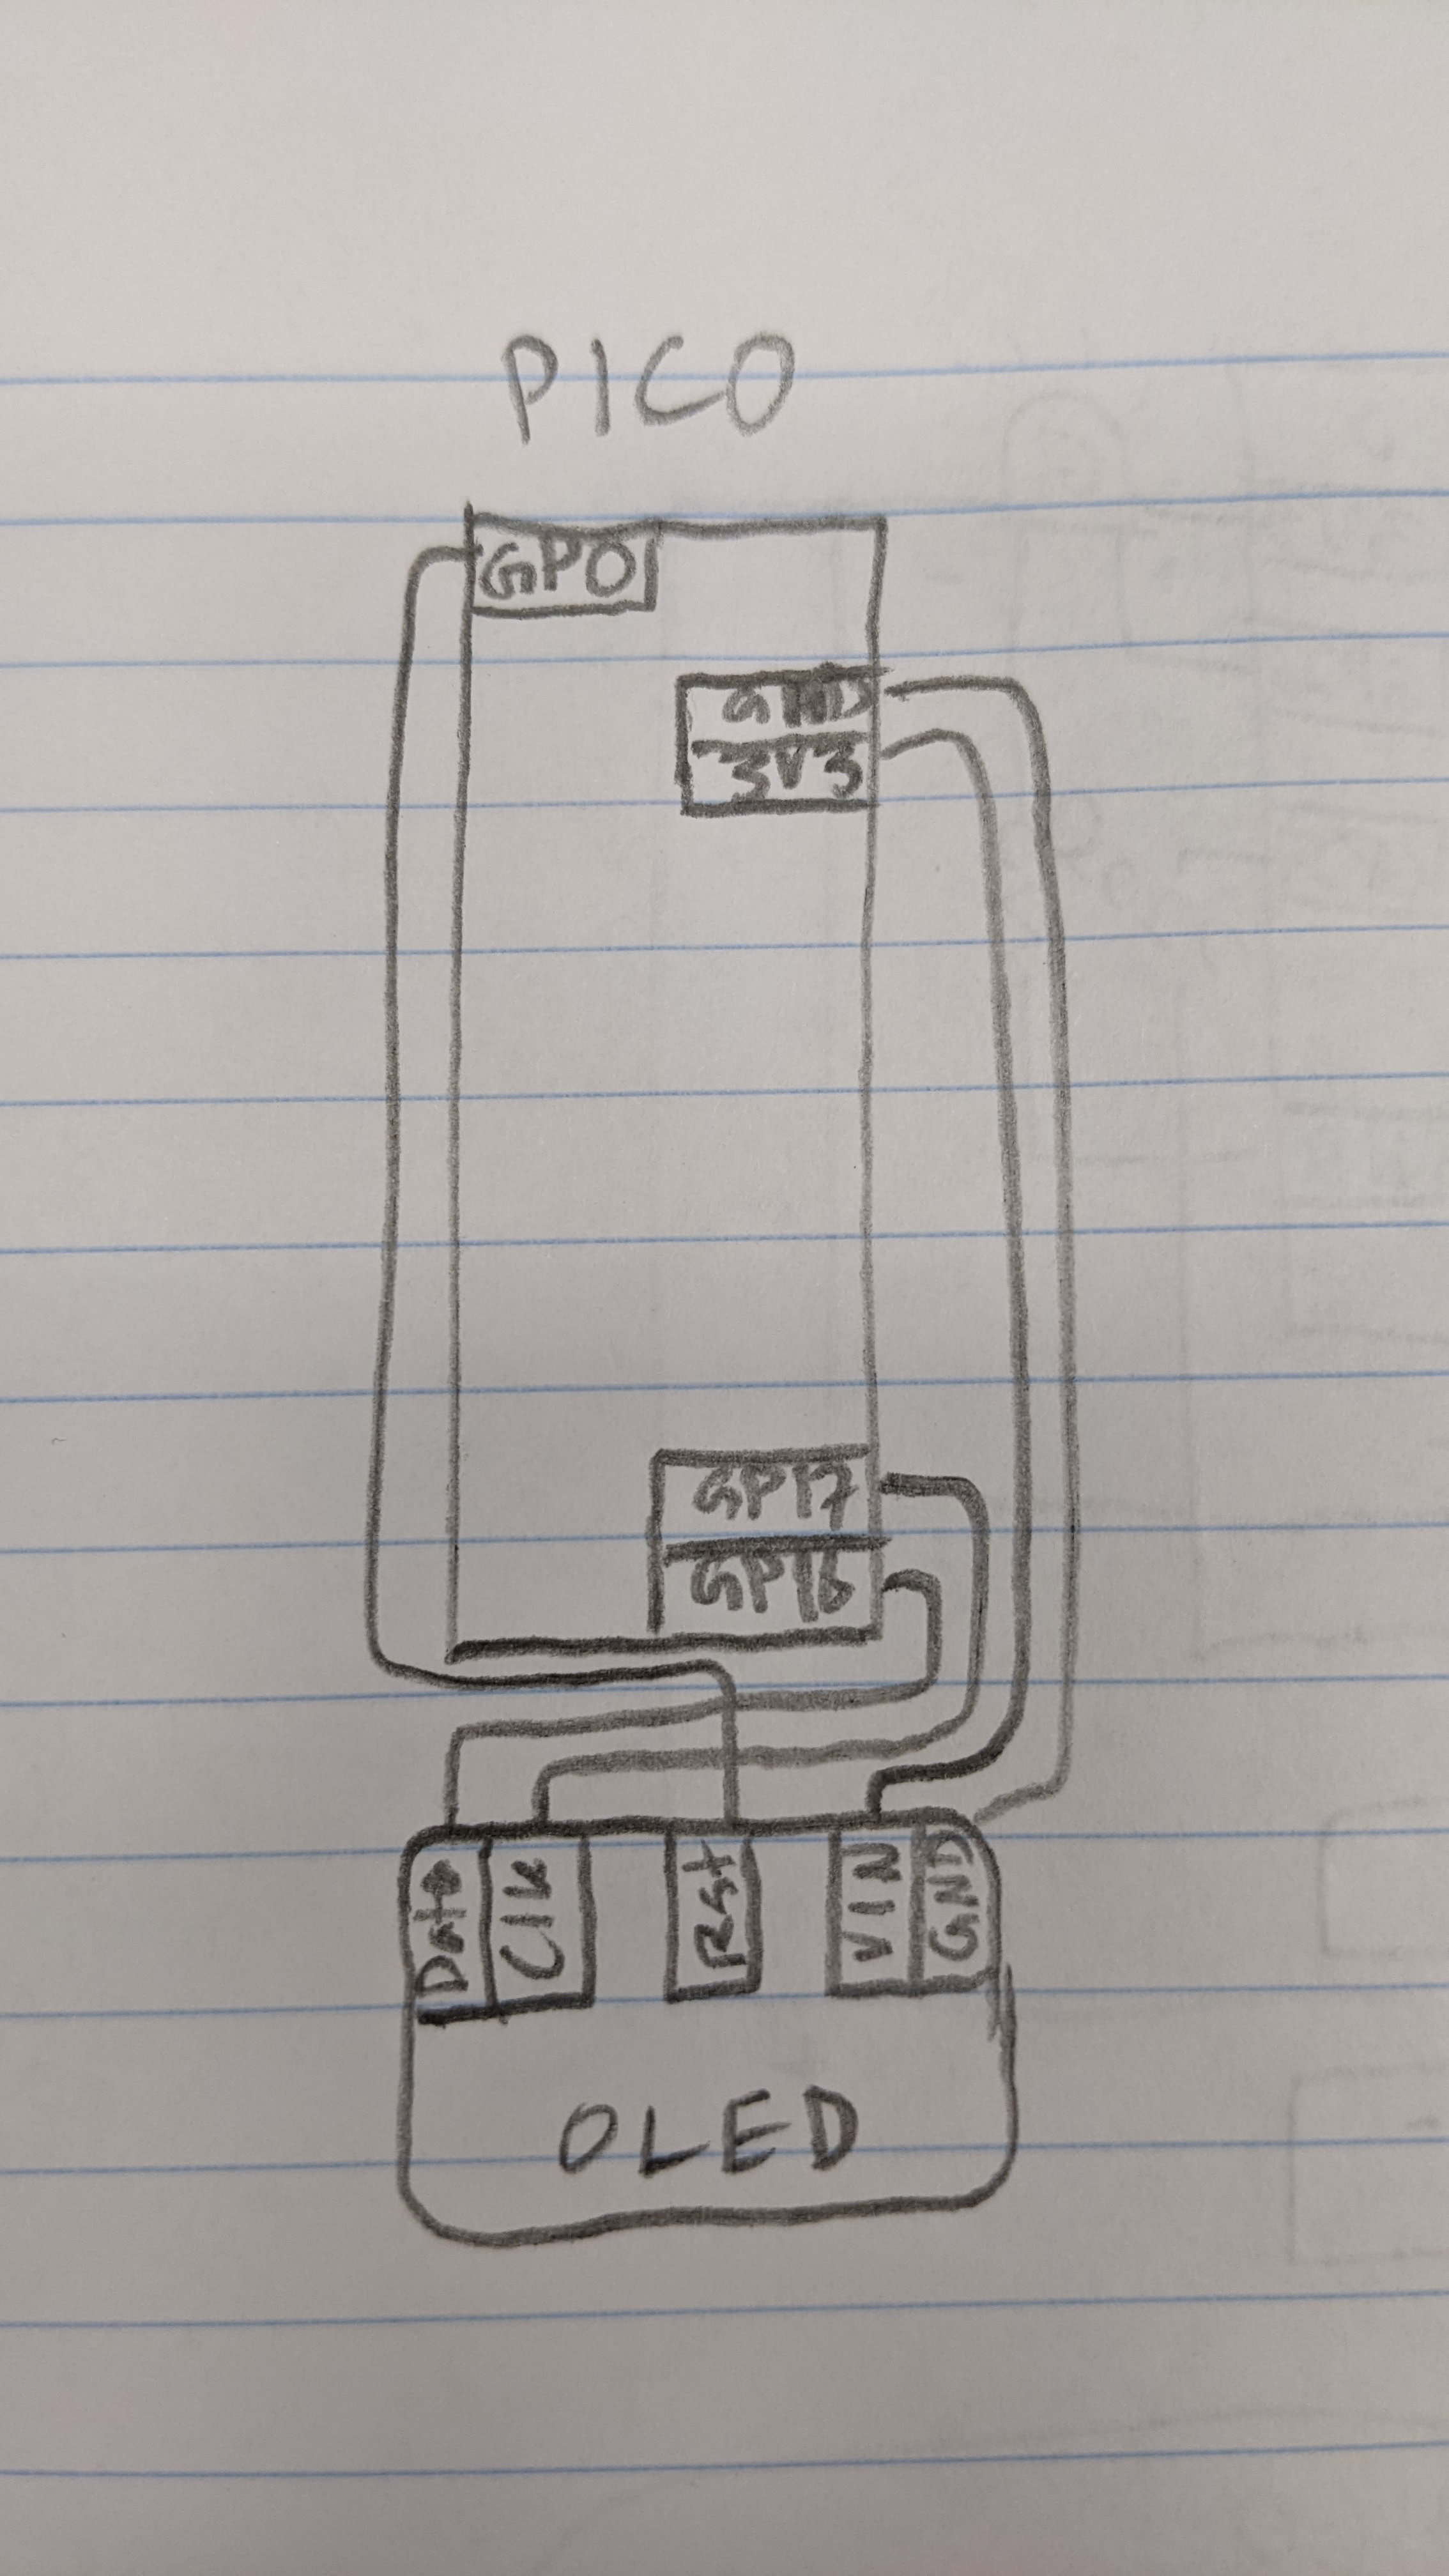 PICO
GP0
GND
3V3
GP17
GP16
Data Clk Rst VIN GND
OLED